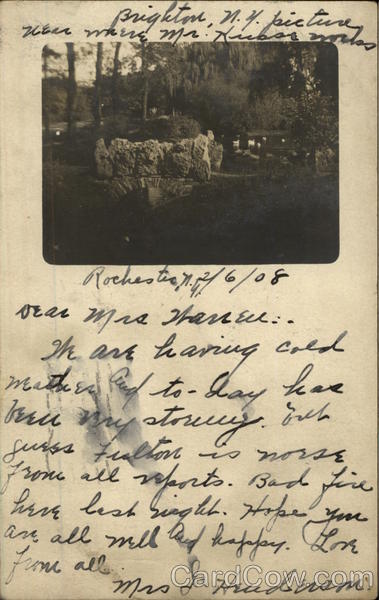 Brighton, N.Y. picture
near where Mr. Kruse works
Rochester, N.Y. 2/6/08
Dear Mrs Warren:.
We are having cold
weather and to-day has
been very stormy. But
guess Fulton is worse
from all reports. Bad fire
here last night. Hope you
are all well and happy. Love
from all.
Mrs J Henderson.
© CardCow.com